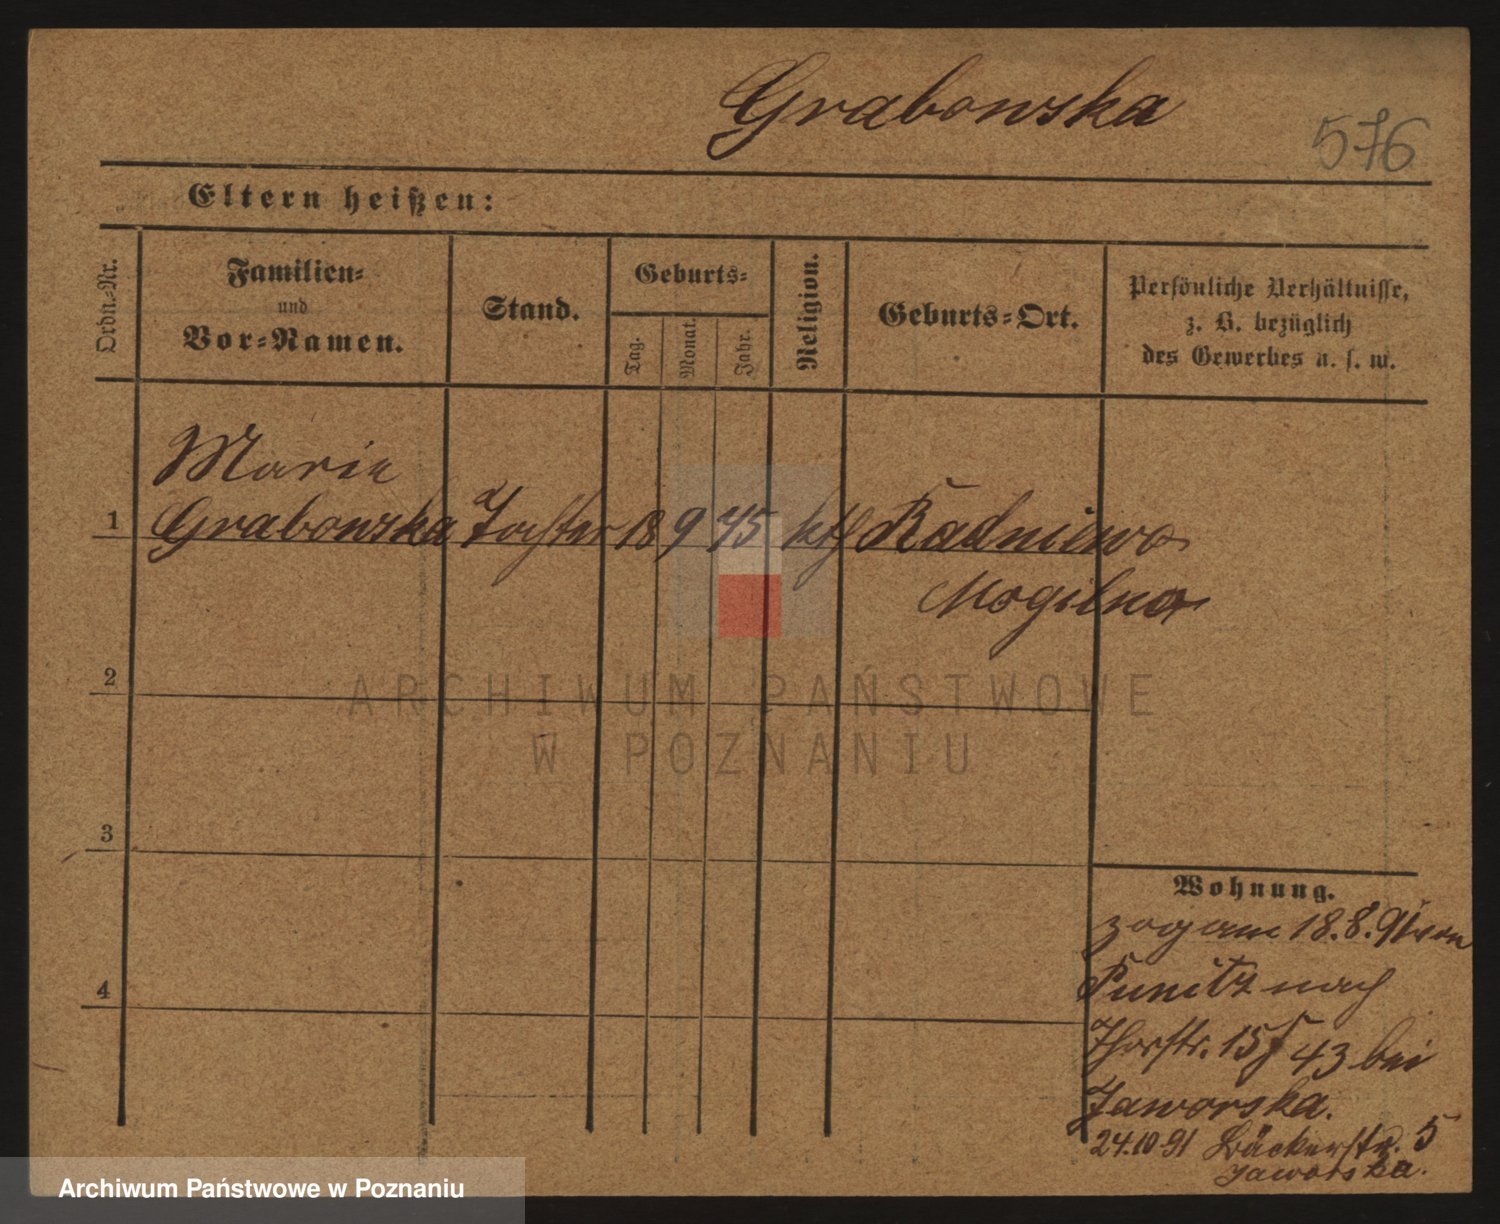 Grabowska
576
Eltern heißen:
Ordn.-Nr.
Familien-
und
Vor-Namen.
Stand.
Geburts-
Tag.
Monat.
Jahr.
Religion.
Geburts-Ort.
Persönliche Verhältnisse,
z. B. bezüglich
des Gewerbes u. s. w.
Marie
1 Grabowska Tochter 18 9 75 kth Radniewo
Mogilno
2
ARCHIWUM PAŃSTWOWE
W POZNANIU
3
Wohnung.
zog am 18.8.91 von
Punitz nach
4
Thorstr. 15 43 bei
Jaworska.
24.10.91 Bäckerstr. 5
Jaworska.
Archiwum Państwowe w Poznaniu